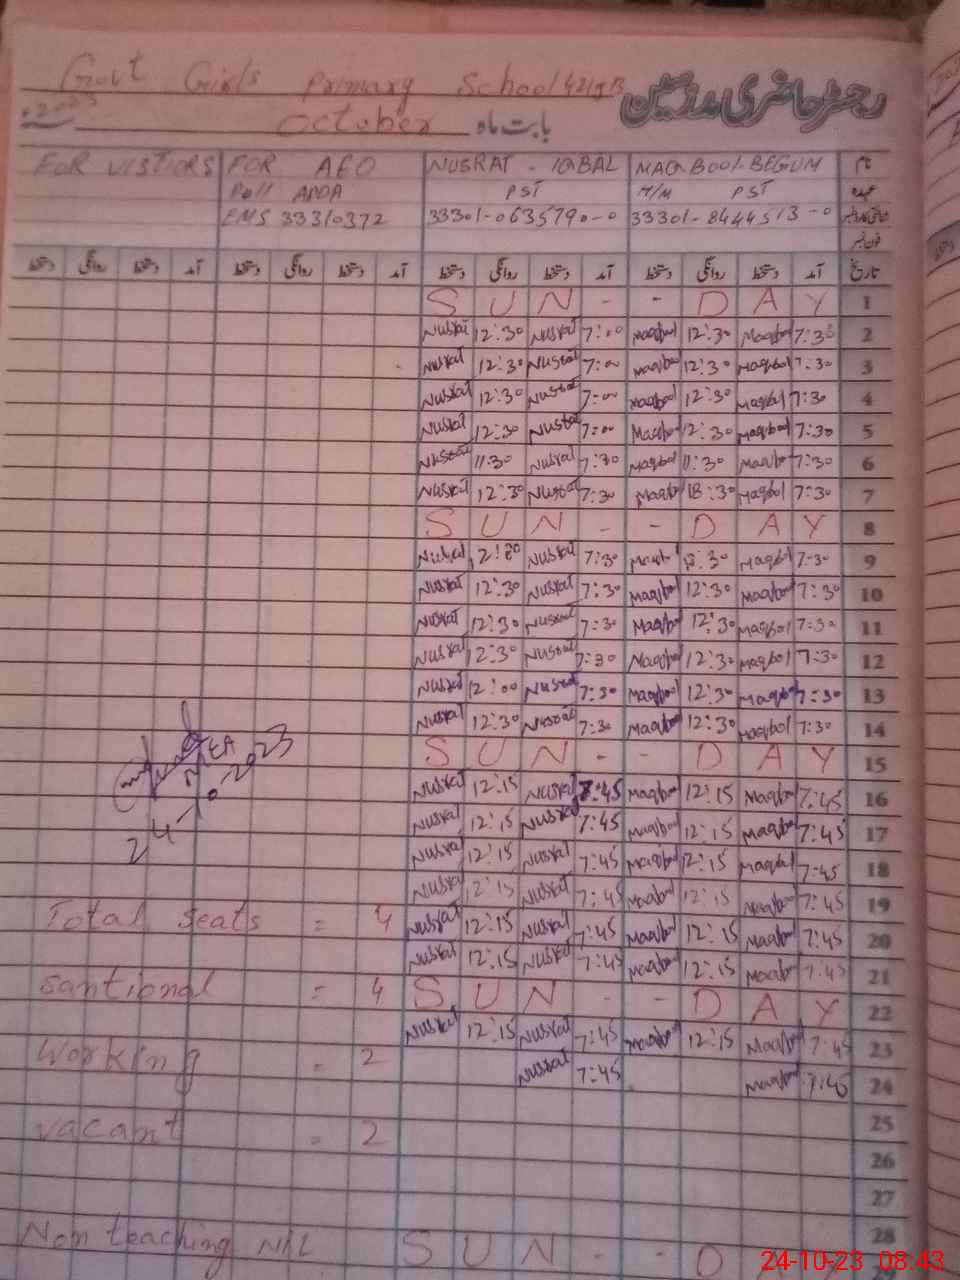 Govt Girls Primary School 421gB رجسٹر حاضری مدرسین
2023 October بابت ماہ
FOR VISTIORS FOR AEO NUSRAT - IQBAL MAQBOOL-BEGUM نام
Poll ADDA PST H/M PST عہدہ
EMS 33310372 33301-0635790-0 33301-8444513-0
فون نمبر
دستخط روانگی دستخط آمد دستخط روانگی دستخط آمد دستخط روانگی دستخط آمد دستخط روانگی دستخط آمد تاریخ
S U N - - D A Y 1
Nusrat 12:30 Nusrat 7:00 Maqbool 12:30 Maqbool 7:30 2
Nusrat 12:30 Nusrat 7:00 Maqbool 12:30 Maqbool 7:30 3
Nusrat 12:30 Nusrat 7:00 Maqbool 12:30 Maqbool 7:30 4
Nusrat 12:30 Nusrat 7:00 Maqbool 12:30 Maqbool 7:30 5
Nusrat 11:30 Nusrat 7:30 Maqbol 11:30 Maqbol 7:30 6
Nusrat 12:30 Nusrat 7:30 Maqbol 12:30 Maqbol 7:30 7
S U N - - D A Y 8
Nusrat Nusrat 7:30 12:30 Maqbol 7:30 9
Nusrat 12:30 Nusrat 7:30 Maqbool 12:30 Maqbool 7:30 10
Nusrat 12:30 Nusrat 7:30 Maqbool 12:30 Maqbol 7:30 11
Nusrat 12:30 Nusrat 7:30 Maqbool 12:30 Maqbol 7:30 12
Nusrat 12:00 Nusrat 7:30 Maqbool 12:30 Maqbool 7:30 13
Nusrat 12:30 Nusrat 7:30 Maqbool 12:30 Maqbol 7:30 14
MEA
24-10-2023
S U N - - D A Y 15
Nusrat 12:15 Nusrat 7:45 Maqbool 12:15 Maqbool 7:45 16
Nusrat 12:15 Nusrat 7:45 Maqbool 12:15 Maqbool 7:45 17
Nusrat 12:15 Nusrat 7:45 Maqbool 12:15 Maqbol 7:45 18
Nusrat 12:15 Nusrat 7:45 Maqbool 12:15 Maqbool 7:45 19
Total seats = 4 Nusrat 12:15 Nusrat 7:45 Maqbool 12:15 Maqbool 7:45 20
Nusrat 12:15 Nusrat 7:45 Maqbool 12:15 Maqbool 7:45 21
santional = 4 S U N - - D A Y 22
Nusrat 12:15 Nusrat 7:45 Maqbool 12:15 Maqbool 7:45 23
Working = 2 Nusrat 7:45 Maqbool 7:45 24
vacant = 2 25
26
27
28
Non teaching NIL S U N - - D
24-10-23 08:43